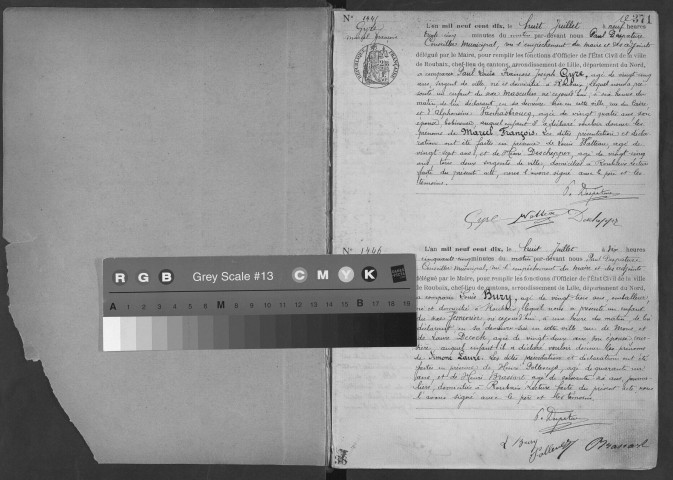 371
N° 1445
Gyre
Marcel François
L'an mil neuf cent dix, le huit Juillet à neuf heures
trente cinq minutes du matin par-devant nous Paul Despature
Conseiller municipal, vu l'empêchement du maire et des adjoints
délégué par le Maire, pour remplir les fonctions d'Officier de l'État Civil de la ville
de Roubaix, chef-lieu de cantons, arrondissement de Lille, département du Nord,
a comparu Paul Louis François Joseph Gyre, âgé de vingt cinq
ans, sergent de ville, né et domicilié à Roubaix, lequel nous a pré
senté un enfant du sexe masculin né aujourd'hui, à six heures du
matin, de lui déclarant, en sa demeure sise en cette ville rue
et d'Alphonsine, âgée de vingt quatre ans son
épouse, auquel enfant il a déclaré vouloir donner les
prénoms de Marcel François. Les dites présentation et décla
ration ont été faites en présence de Louis Watteau, âgé de
vingt sept ans, et de Deschepper, âgé de vingt cinq
ans, tous deux sergents de ville, domiciliés à Roubaix. Lecture
faite du présent acte, nous l'avons signé avec le père et les
témoins.
P. Despature
Gyre Watteau Deschepper
N° 1446
L'an mil neuf cent dix, le huit Juillet à dix heures
cinquante cinq minutes du matin par-devant nous Paul Despature
Conseiller municipal, vu l'empêchement du maire et des adjoints
délégué par le Maire, pour remplir les fonctions d'Officier de l'État Civil de la ville
de Roubaix, chef-lieu de cantons, arrondissement de Lille, département du Nord,
a comparu Louis Bury, âgé de vingt trois ans, emballeur,
né et domicilié à Roubaix, lequel nous a présenté un enfant
du sexe féminin né aujourd'hui, à une heure du matin, de lui
déclarant, en sa demeure sise en cette ville rue de Mons, et
de Laure Decock, âgée de vingt deux ans son épouse
auquel enfant il a déclaré vouloir donner les prénoms
de Simone Laure. Les dites présentation et déclaration ont été
faites en présence de Henri, âgé de quarante un
ans, et de Henri Brassart âgé de soixante ans
domiciliés à Roubaix. Lecture faite du présent acte nous
l'avons signé avec le père et les témoins.
P. Despature
L. Bury
Brassart
R G B Grey Scale #13 C M Y K
A 1 2 3 4 5 6 M 8 9 10 11 12 13 14 15 B 17 18 19